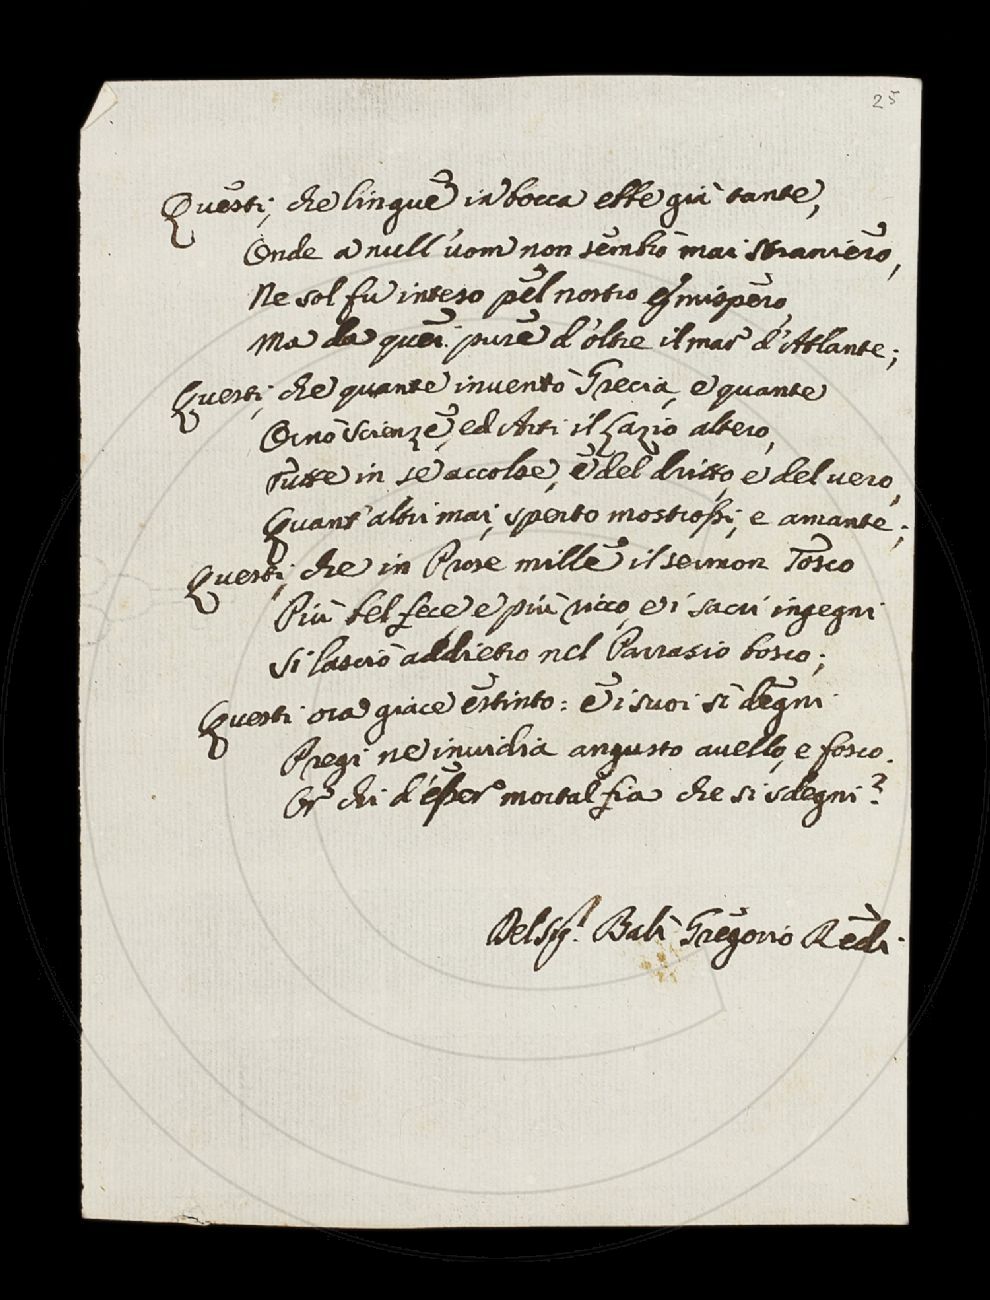 25
Questi, che lingue in bocca ebbe già tante,
Onde a null'uom non sembrò mai straniero,
Ne sol fu inteso pel nostro Emispero,
Ma da quei pure d'oltre il mar d'Atlante;
Questi, che quante inventò Grecia, e quante
Ornò Scienze, ed Arti il Lazio altero,
Tutte in se accolse, e del dritto, e del vero,
Quant'altri mai, sperto mostrossi, e amante;
Questi, che in Prose mille il sermon Tosco
Più bel fece, e più ricco, e i sacri ingegni
Si lasciò addietro nel Parrasio bosco;
Questi ora giace estinto: e i suoi sì degni
Pregi ne invidia angusto avello, e fosco.
Or chi d'esser mortal fia che si sdegni?
Del Sigr. Balì Gregorio Redi.